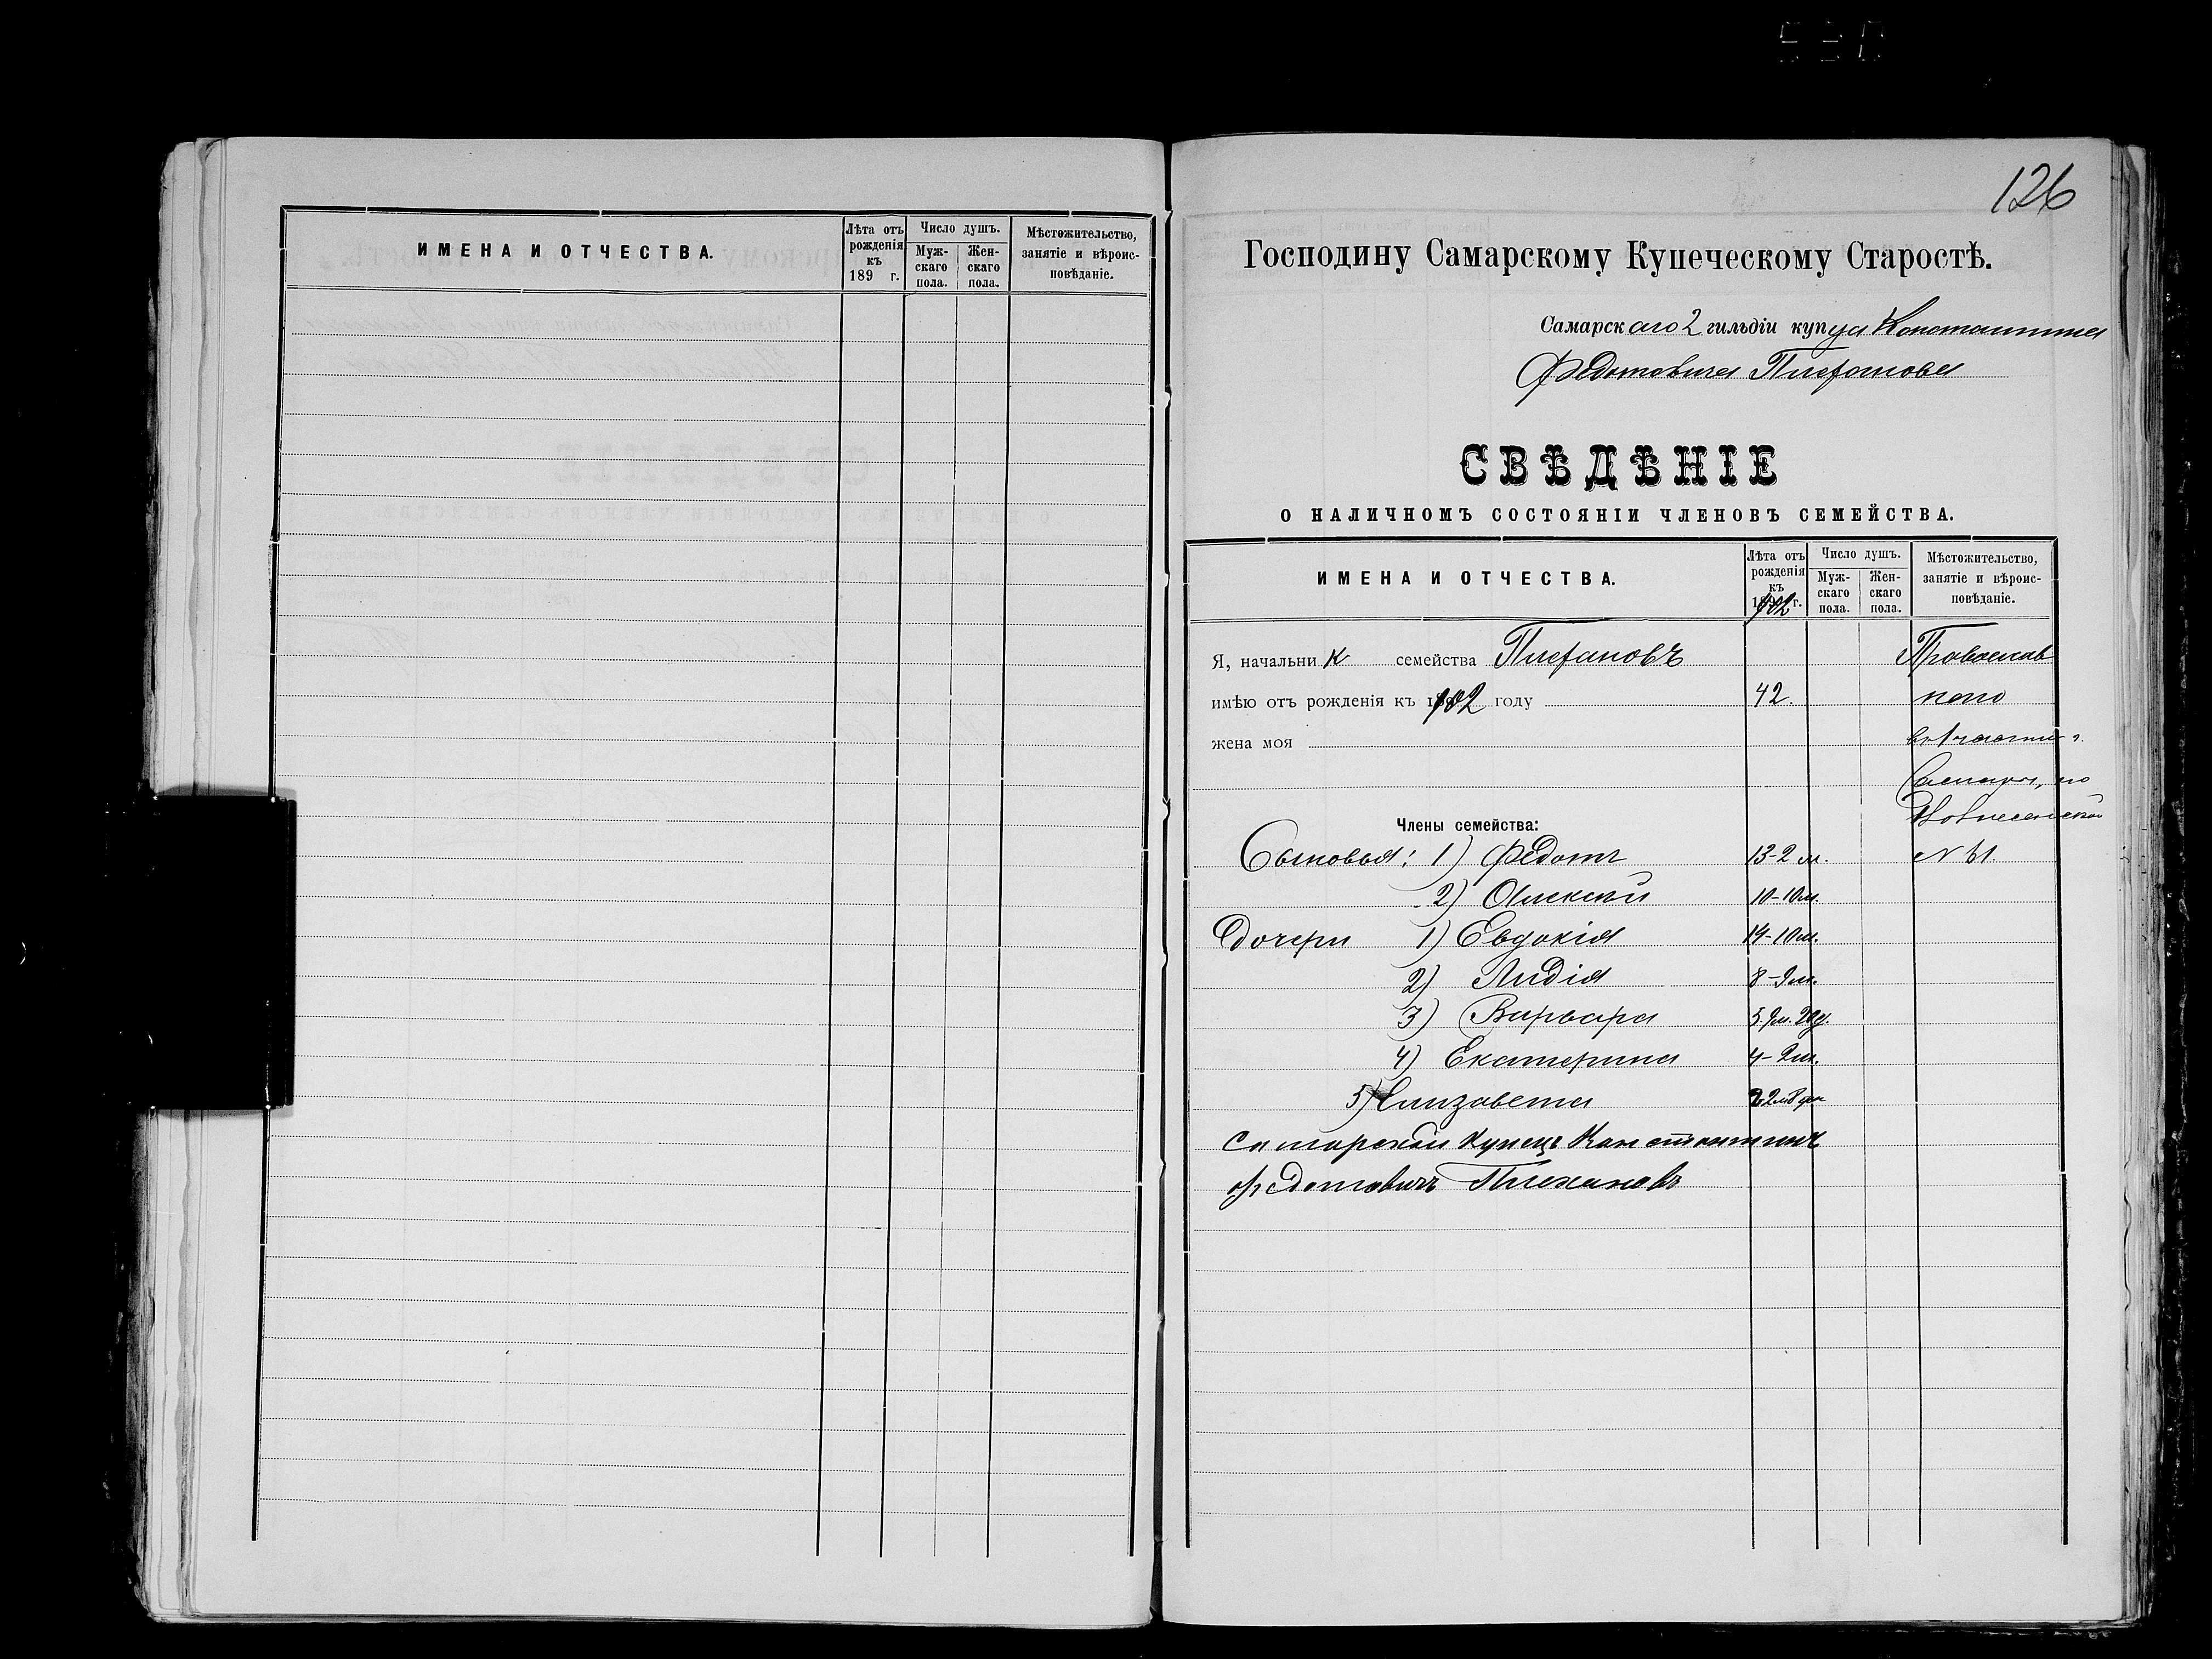 ИМЕНА И ОТЧЕСТВА.
Лѣта отъ рожденія къ 189 г.
Число душъ.
Муж-скаго пола.
Жен-скаго пола.
Мѣстожительство, занятіе и вѣроис-повѣданіе.
126
Господину Самарскому Купеческому Старостѣ.
Самарскаго 2 гильдіи купца Константина
Федотовича Плеханова
СВѢДѢНІЕ
О НАЛИЧНОМЪ СОСТОЯНІИ ЧЛЕНОВЪ СЕМЕЙСТВА.
ИМЕНА И ОТЧЕСТВА.
Лѣта отъ рожденія къ 1902 г.
Число душъ.
Муж-скаго пола.
Жен-скаго пола.
Мѣстожительство, занятіе и вѣроис-повѣданіе.
Я, начальникъ семейства Плехановъ Православ
имѣю отъ рожденія къ 1902 году 42. наго
жена моя въ 1 части г.
Самары, по
Члены семейства: Вознесенской
Сыновья: 1) Федотъ 13-2 м. № 61.
2) Алексѣй 10-10м.
Дочери 1) Евдокія 19-10м.
2) Лидія 8-9м.
3) Варвара 5.9м. 20д.
4) Екатерина 4-2м.
5) Елизавета
Самарскои Купецъ Константинъ
Федотовичъ Плехановъ